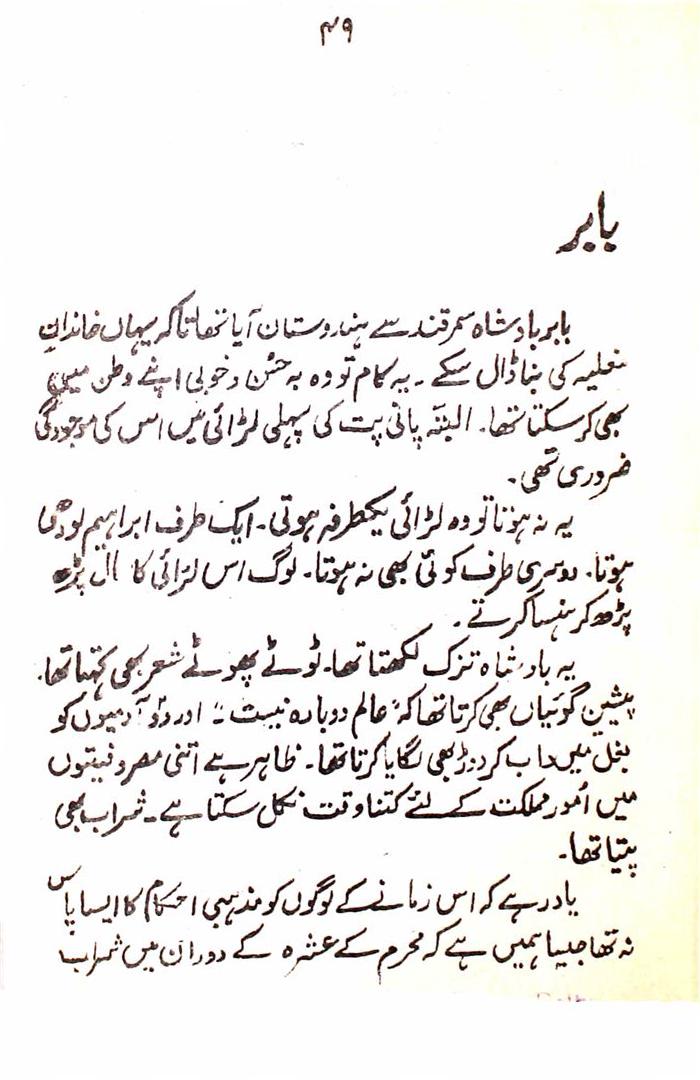 ۴۹
بابر
بابر بادشاہ سمرقند سے ہندوستان آیا تھا تاکہ یہاں خاندانِ
مغلیہ کی بنا ڈال سکے ۔ یہ کام تو وہ بہ حسن و خوبی اپنے وطن میں
بھی کر سکتا تھا۔ البتہ پانی پت کی پہلی لڑائی میں اس کی موجودگی
ضروری تھی۔
یہ نہ ہوتا تو وہ لڑائی یکطرفہ ہوتی۔ ایک طرف ابراہیم لودھی
ہوتا۔ دوسری طرف کوئی بھی نہ ہوتا۔ لوگ اس لڑائی کا ال پڑھ
پڑھ کر ہنسا کرتے ۔
یہ بادشاہ تزک لکھتا تھا۔ ٹوٹے پھوٹے شعر بھی کہتا تھا۔
پیشین گوئیاں بھی کرتا تھا کہ "عالم دوبارہ نیست"۔ اور دو آدمیوں کو
بغل میں داب کر دوڑ بھی لگایا کرتا تھا۔ ظاہر ہے اتنی مصروفیتوں
میں اُمور مملکت کے لئے کتنا وقت نکل سکتا ہے ۔ شراب بھی
پیتا تھا۔
یاد رہے کہ اس زمانے کے لوگوں کو مذہبی احکام کا ایسا پاس
نہ تھا جیسا ہمیں ہے کہ محرم کے عشرہ کے دوران میں شراب